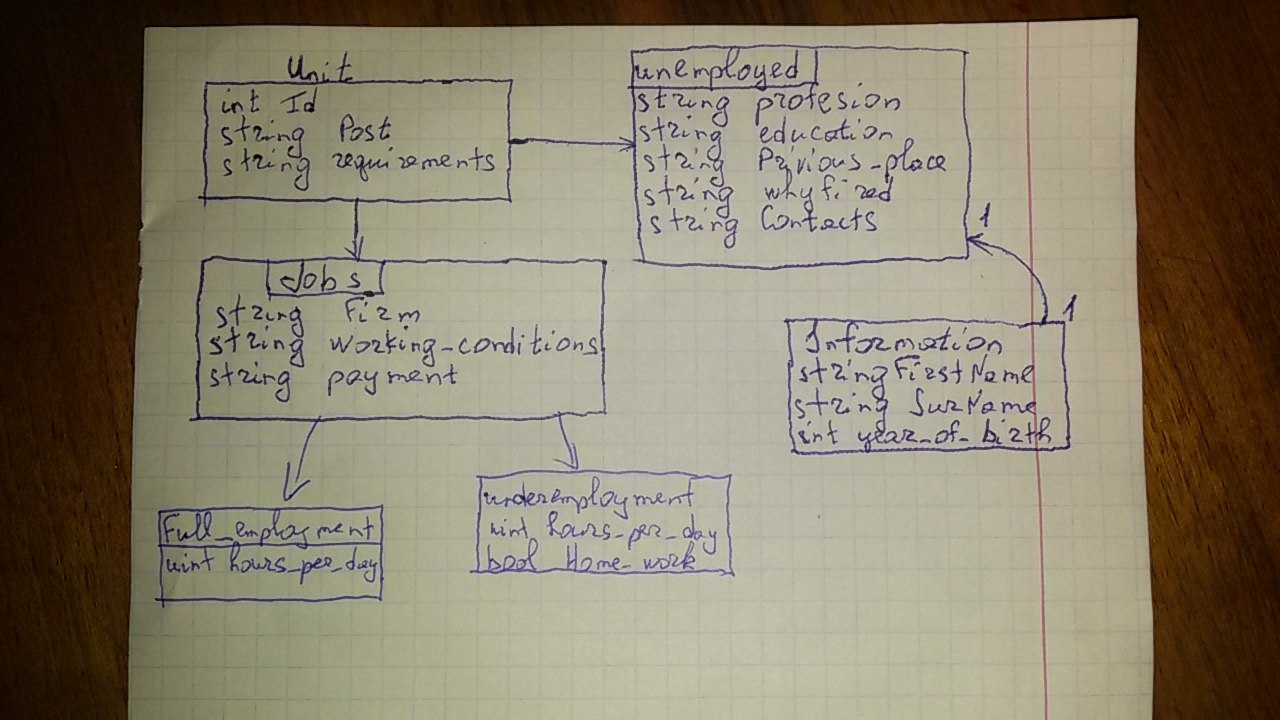 Unit
int Id
string Post
string requirements
unemployed
string profesion
string education
string Privious_place
string whyfired
string Contacts
1
Jobs
string Firm
string working_conditions
string payment
1
Information
string FirstName
string SurName
int year_of_birth
Full_employment
uint hours_per_day
underemployment
uint hours_per_day
bool Home_work